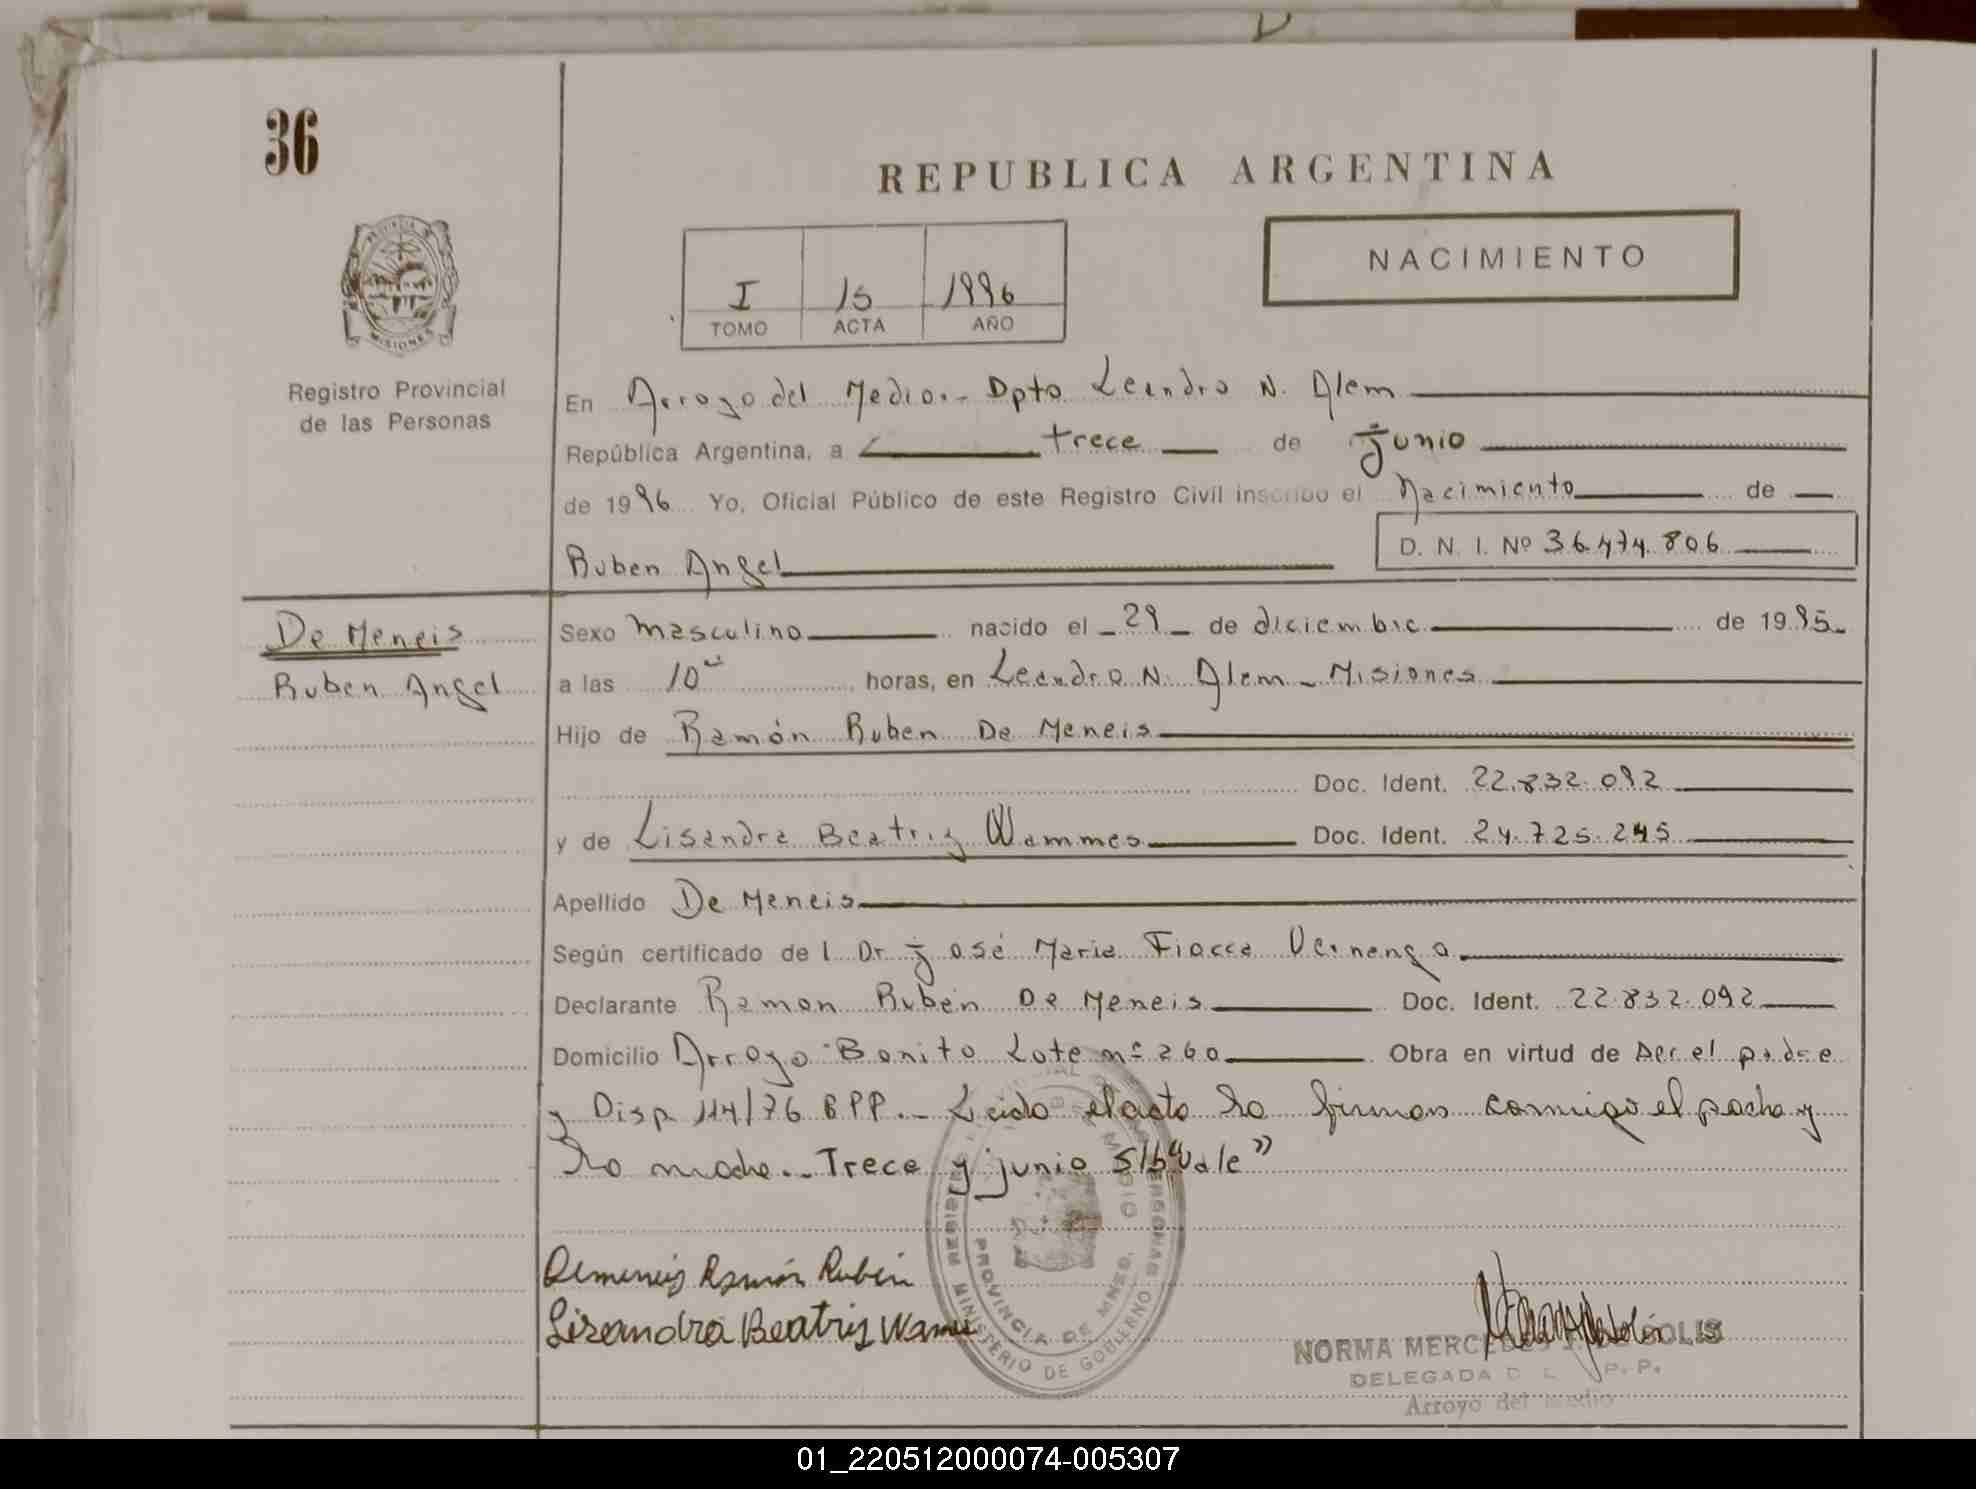 36
REPUBLICA ARGENTINA
NACIMIENTO
I 15 1996
TOMO ACTA AÑO
PROVINCIA DE MISIONES
Registro Provincial
de las Personas
En Arroyo del Medio.- Dpto Leandro N. Alem
República Argentina, a trece de junio
de 1996 Yo, Oficial Público de este Registro Civil inscribo el Nacimiento de
D. N. I. Nº 36.474.806
Ruben Angel
De Meneis
Ruben Angel
Sexo masculino nacido el 29 de diciembre de 1995
a las 10 horas, en Leandro N. Alem - Misiones
Hijo de Ramón Ruben De Meneis
Doc. Ident. 22.832.092
y de Lisandra Beatriz Wammes Doc. Ident. 24.725.245
Apellido De Meneis
Según certificado del Dr José Maria Fiacca Vernengo
Declarante Ramon Ruben De Meneis Doc. Ident. 22.832.092
Domicilio Arroyo Bonito Lote nº 260 Obra en virtud de ser el padre
y Disp 114/76 BPP.- Leido el acta la firman conmigo el padre y
la madre.- Trece y junio S/b "Vale"
Demeneis Ramón Rubén
Lisandra Beatriz Wames
PROVINCIA DE MNES.
MINISTERIO DE GOBIERNO
NORMA MERCEDES
DELEGADA
Arroyo del Medio
01_220512000074-005307